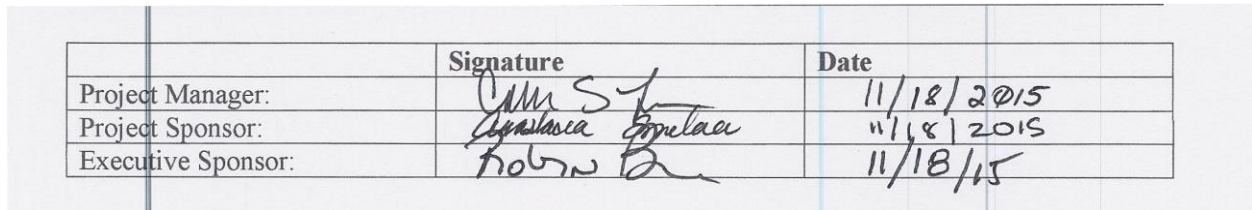 Signature Date
Project Manager: 11/18/2015
Project Sponsor: Anastasia 11/18/2015
Executive Sponsor: Robin 11/18/15